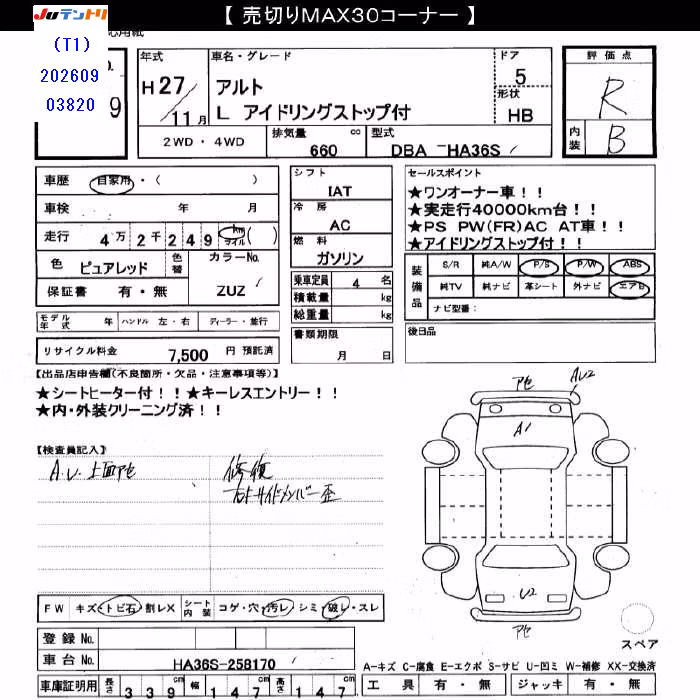 JUテントリ
【 売切りMAX30コーナー 】
(T1)
202609
03820
9
年式
H 27/11月
車名・グレード
アルト
L アイドリングストップ付
ドア
5
形状
HB
評価点
R
内装
B
2WD・4WD
排気量
660 cc
型式
DBA －HA36S
車歴 自家用・( )
車検 年 月
走行 4万 2千 2 4 9 km マイル ( )
色 ピュアレッド 色替
カラーNo.
ZUZ
保証書 有・無
シフト
IAT
冷房
AC
燃料
ガソリン
乗車定員 4 名
積載量 kg
総重量 kg
書類期限
月 日
セールスポイント
★ワンオーナー車！！
★実走行40000km台！！
★PS PW(FR)AC AT車！！
★アイドリングストップ付！！
装備品
S/R 純A/W P/S P/W ABS
純TV 純ナビ 革シート 外ナビ エアB
ナビ型番：
後日品
モデル年式 年 ハンドル 左・右 ディーラー・並行
リサイクル料金 7,500 円 預託済
【出品店申告欄(不良箇所・欠品・注意事項等)】
★シートヒーター付！！★キーレスエントリー！！
★内・外装クリーニング済！！
【検査員記入】
A.U. 上面アセ
修復
右Fサイドメンバー歪
アセ
AU2
A1
U2
アセ
スペア
FW キズ・トビ石・割レX
シート内装 コゲ・穴・汚レ・シミ・破レ・スレ
登録 No.
車台 No. HA36S-258170
車庫証明用 長さ 339cm 幅 147cm 高さ 147cm
A-キズ C-腐食 E-エクボ S-サビ U-凹ミ W-補修 XX-交換済
工具 有・無 ジャッキ 有・無